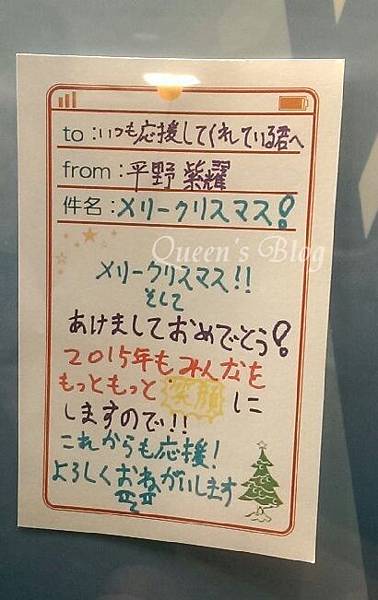 to:いつも応援してくれている君へ
from:平野 紫耀
件名:メリークリスマス!
Queen's Blog
メリークリスマス!!
そして
あけましておめでとう!
2015年もみんなを
もっともっと笑顔に
しますので!!
これからも応援!
よろしくおねがいします